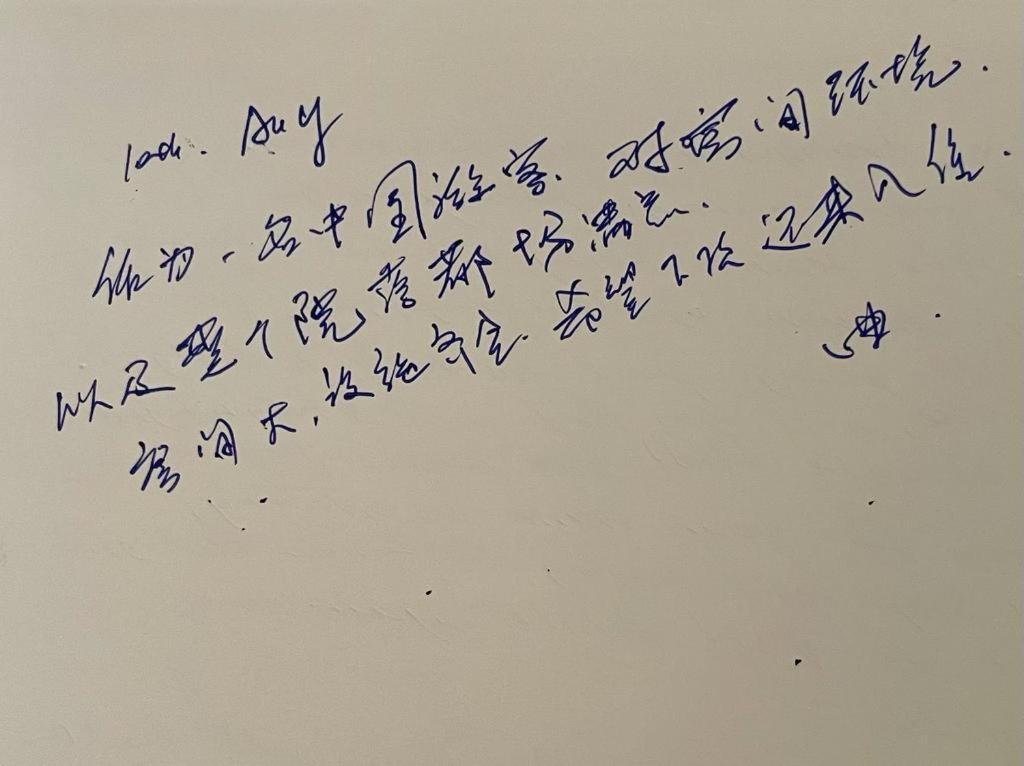 10th. Aug
作为一名中国游客.对房间环境.
以及整个院落都场满意.
房间大,设施齐全.希望下次还来入住.